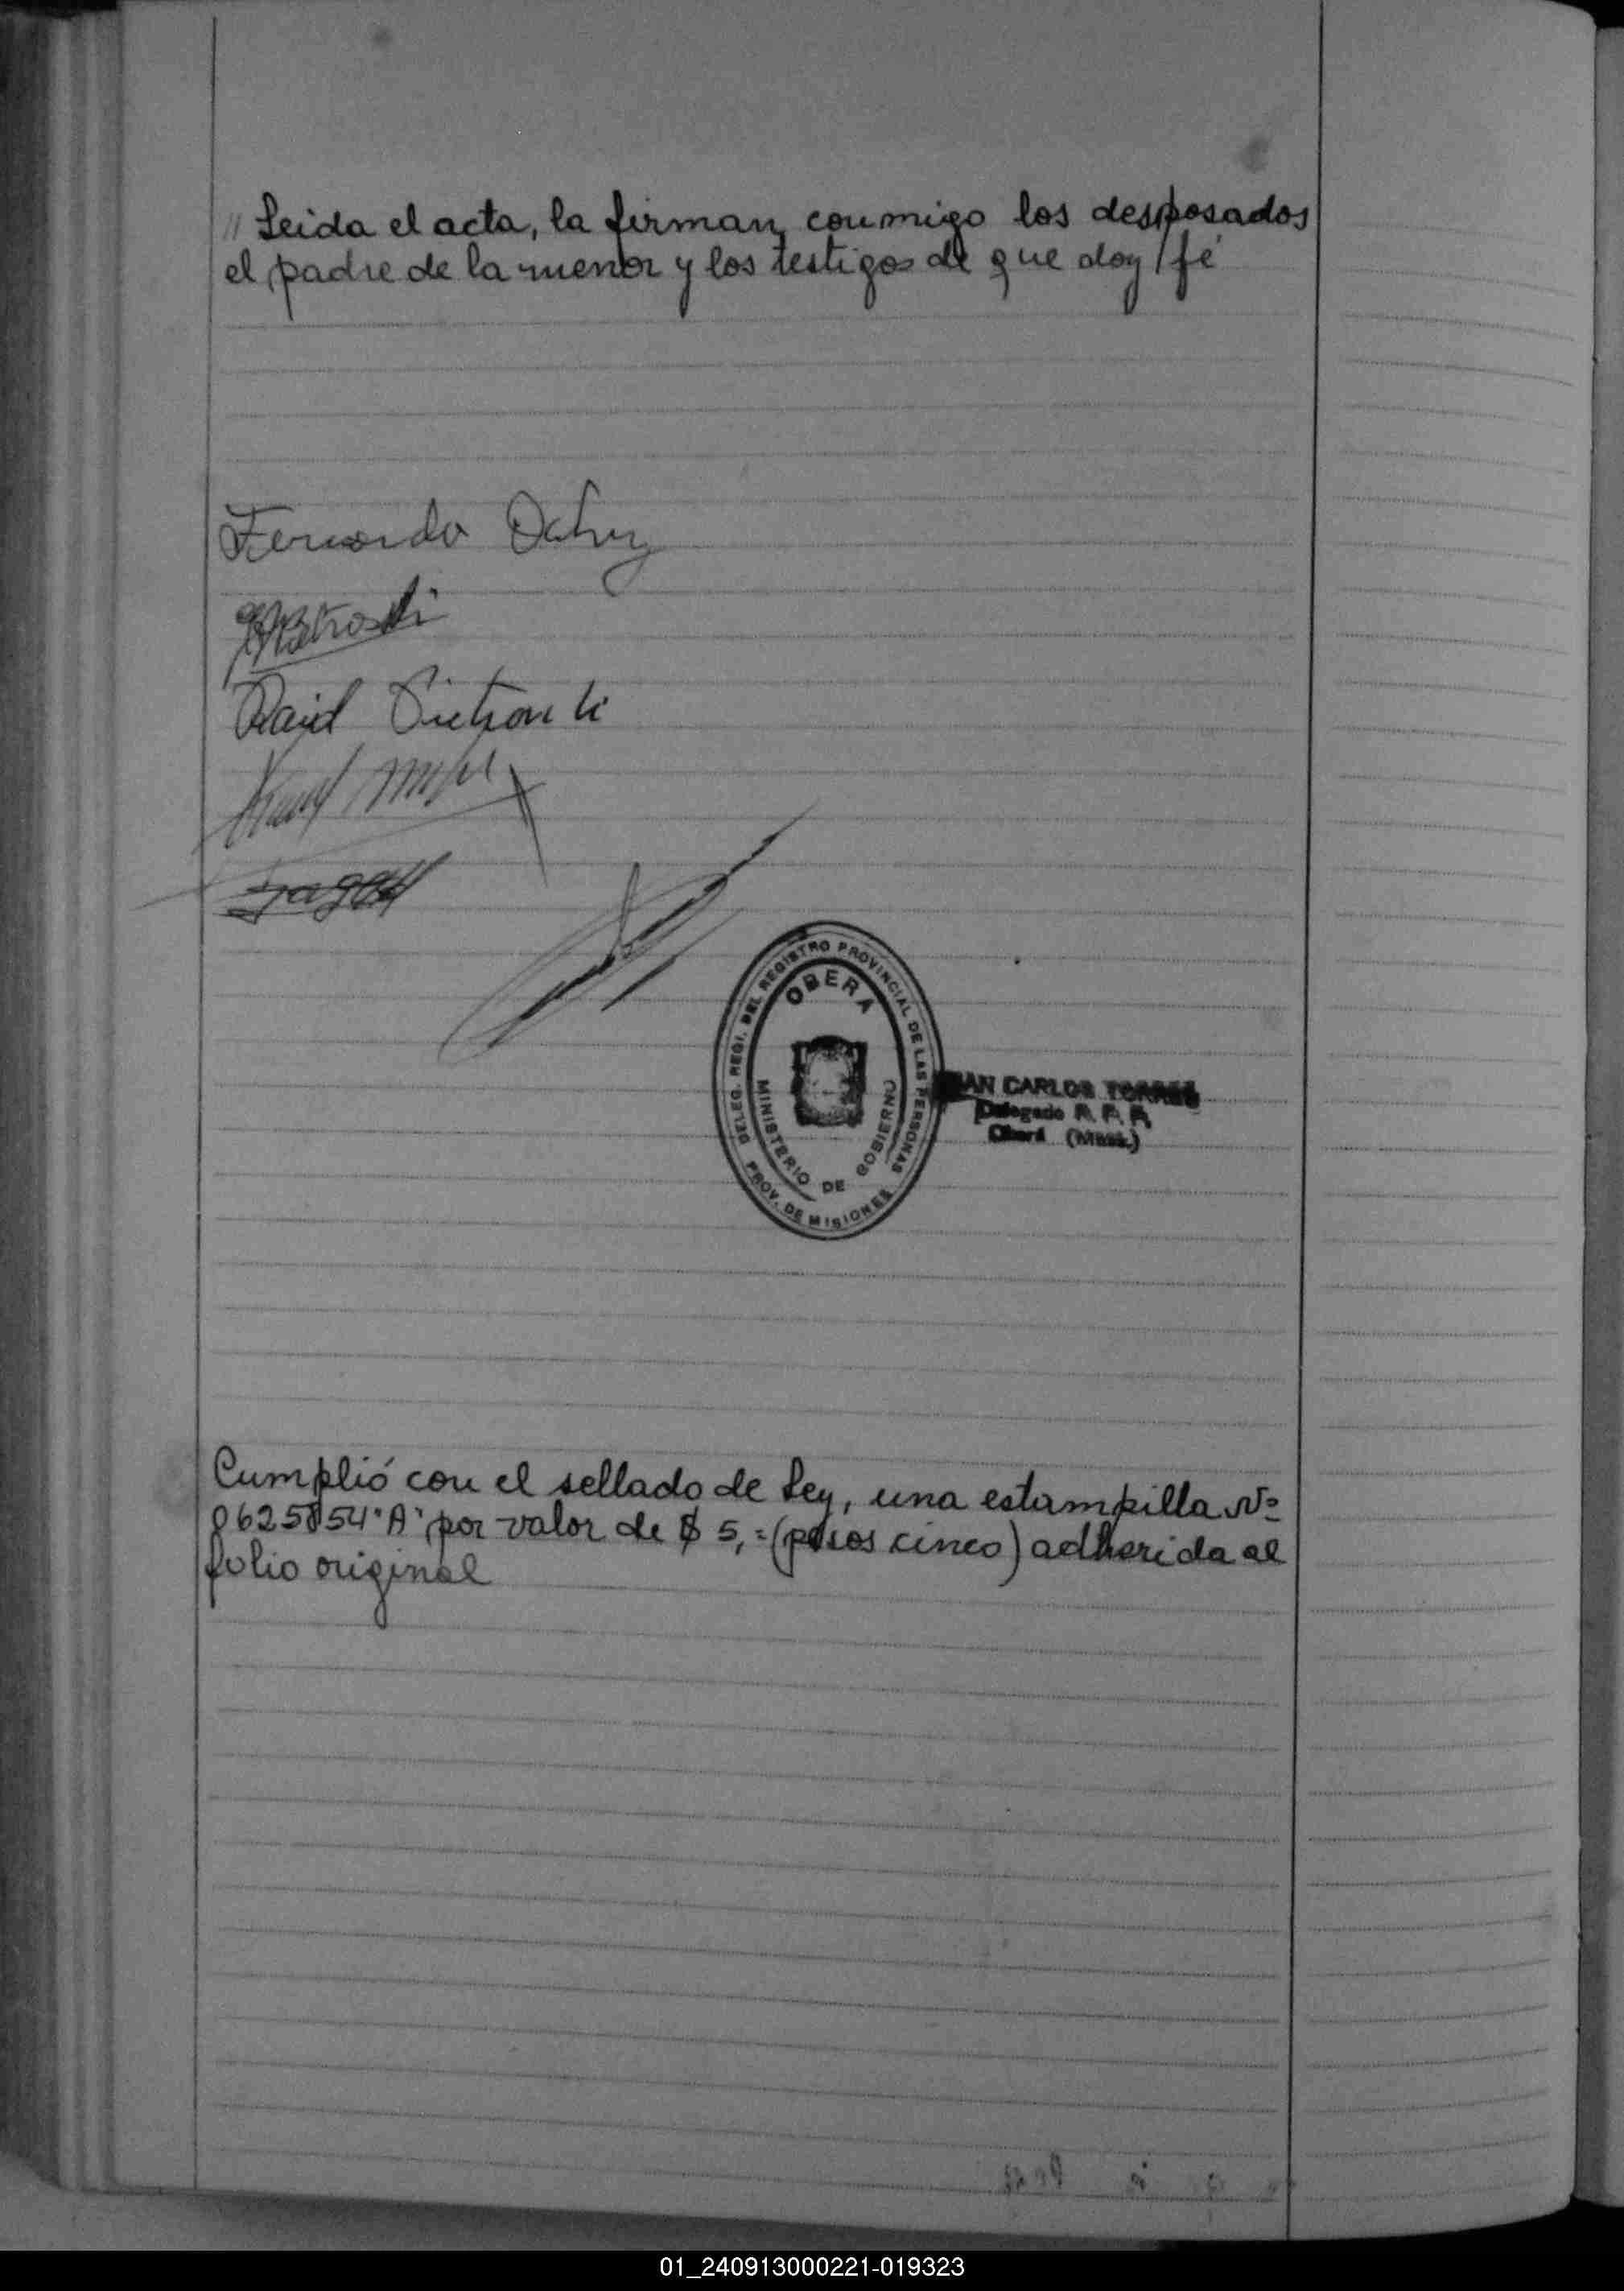 // Leida el acta, la firman conmigo los desposados
el padre de la menor y los testigos de que doy fé
Fernando
OBERA
DELEG. REGI. DEL REGISTRO PROVINCIAL DE LAS PERSONAS
MINISTERIO DE GOBIERNO
PROV. DE MISIONES
CARLOS TORRES
Delegado R. P. P.
Oberá (Mnes.)
Cumplió con el sellado de Ley, una estampilla Nº
0625854 "A" por valor de $ 5,= (pesos cinco) adherida al
folio original
01_240913000221-019323